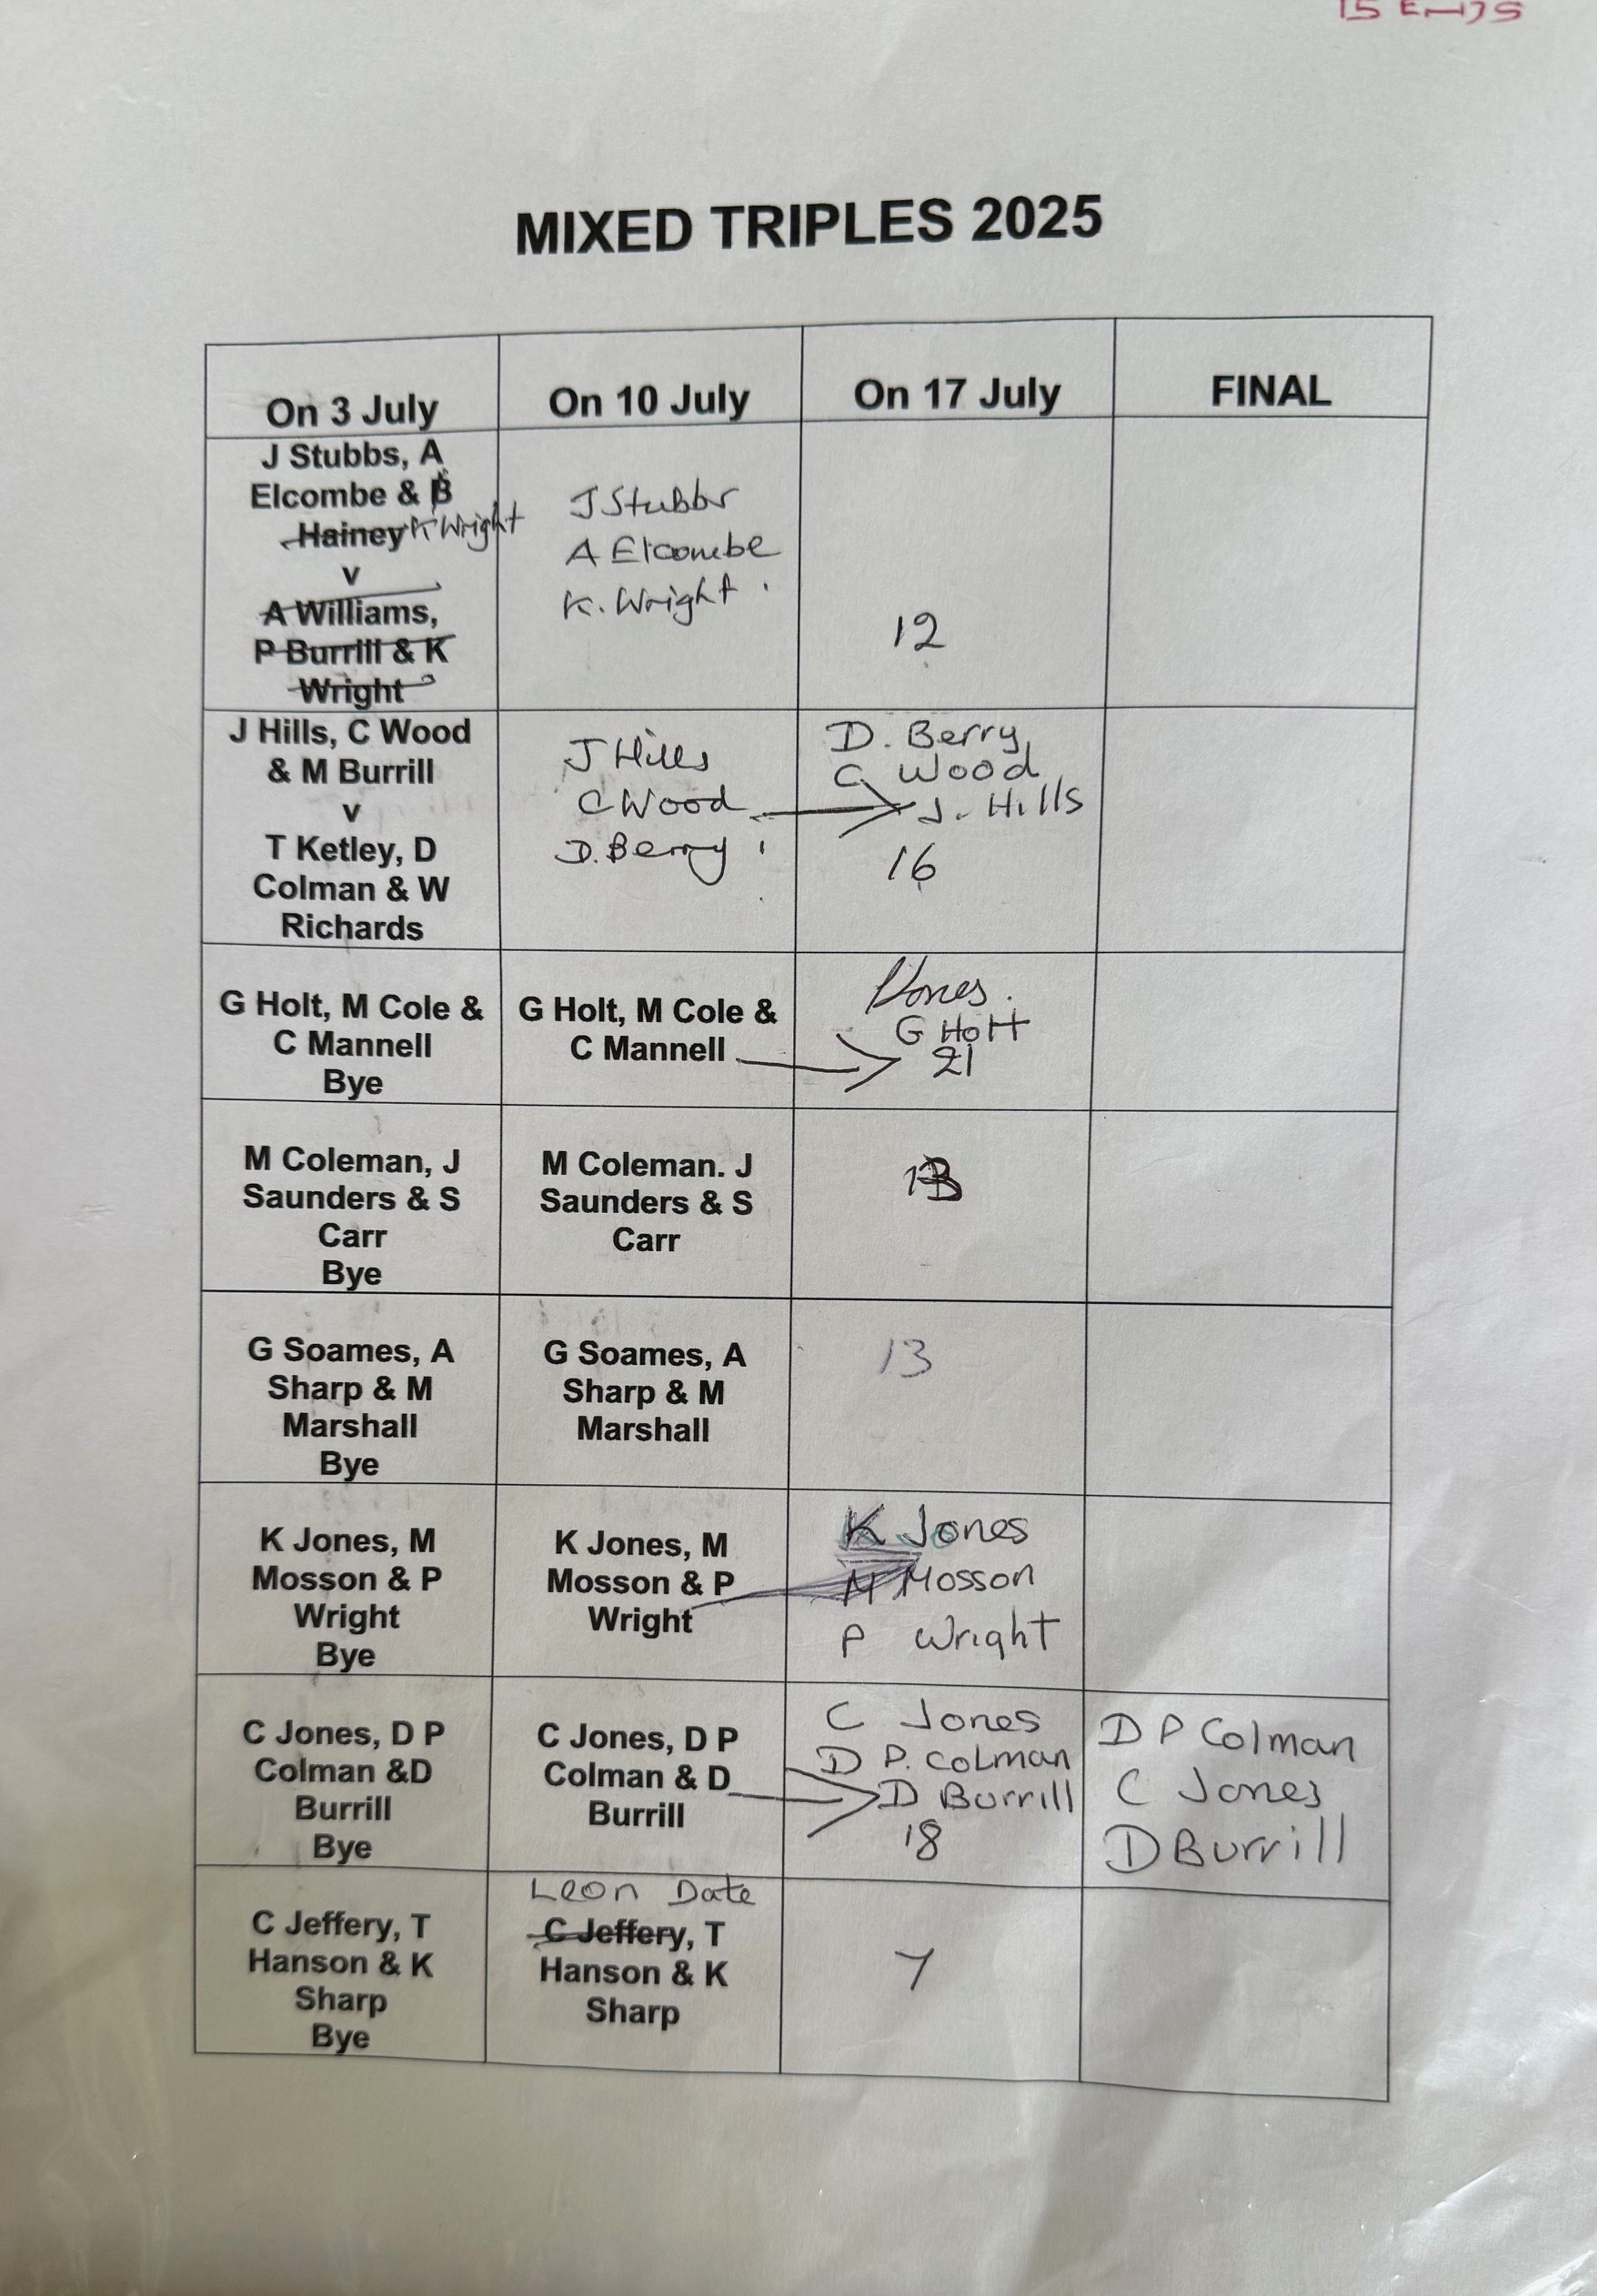 15 ENDS
MIXED TRIPLES 2025
On 3 July
On 10 July
On 17 July
FINAL
J Stubbs, A
Elcombe & B
Hainey K Wright
v
A Williams,
P Burrill & K
Wright
J Stubbs
A Elcombe
K. Wright.
12
J Hills, C Wood
& M Burrill
v
T Ketley, D
Colman & W
Richards
J Hills
C Wood
D. Berry
D. Berry
C Wood
J. Hills
16
G Holt, M Cole &
C Mannell
Bye
G Holt, M Cole &
C Mannell
G Holt
21
M Coleman, J
Saunders & S
Carr
Bye
M Coleman. J
Saunders & S
Carr
G Soames, A
Sharp & M
Marshall
Bye
G Soames, A
Sharp & M
Marshall
13
K Jones, M
Mosson & P
Wright
Bye
K Jones, M
Mosson & P
Wright
K Jones
M Mosson
P Wright
C Jones, D P
Colman &D
Burrill
Bye
C Jones, D P
Colman & D
Burrill
C Jones
D P. Colman
D Burrill
18
D P Colman
C Jones
D Burrill
C Jeffery, T
Hanson & K
Sharp
Bye
Leon Date
C Jeffery, T
Hanson & K
Sharp
7